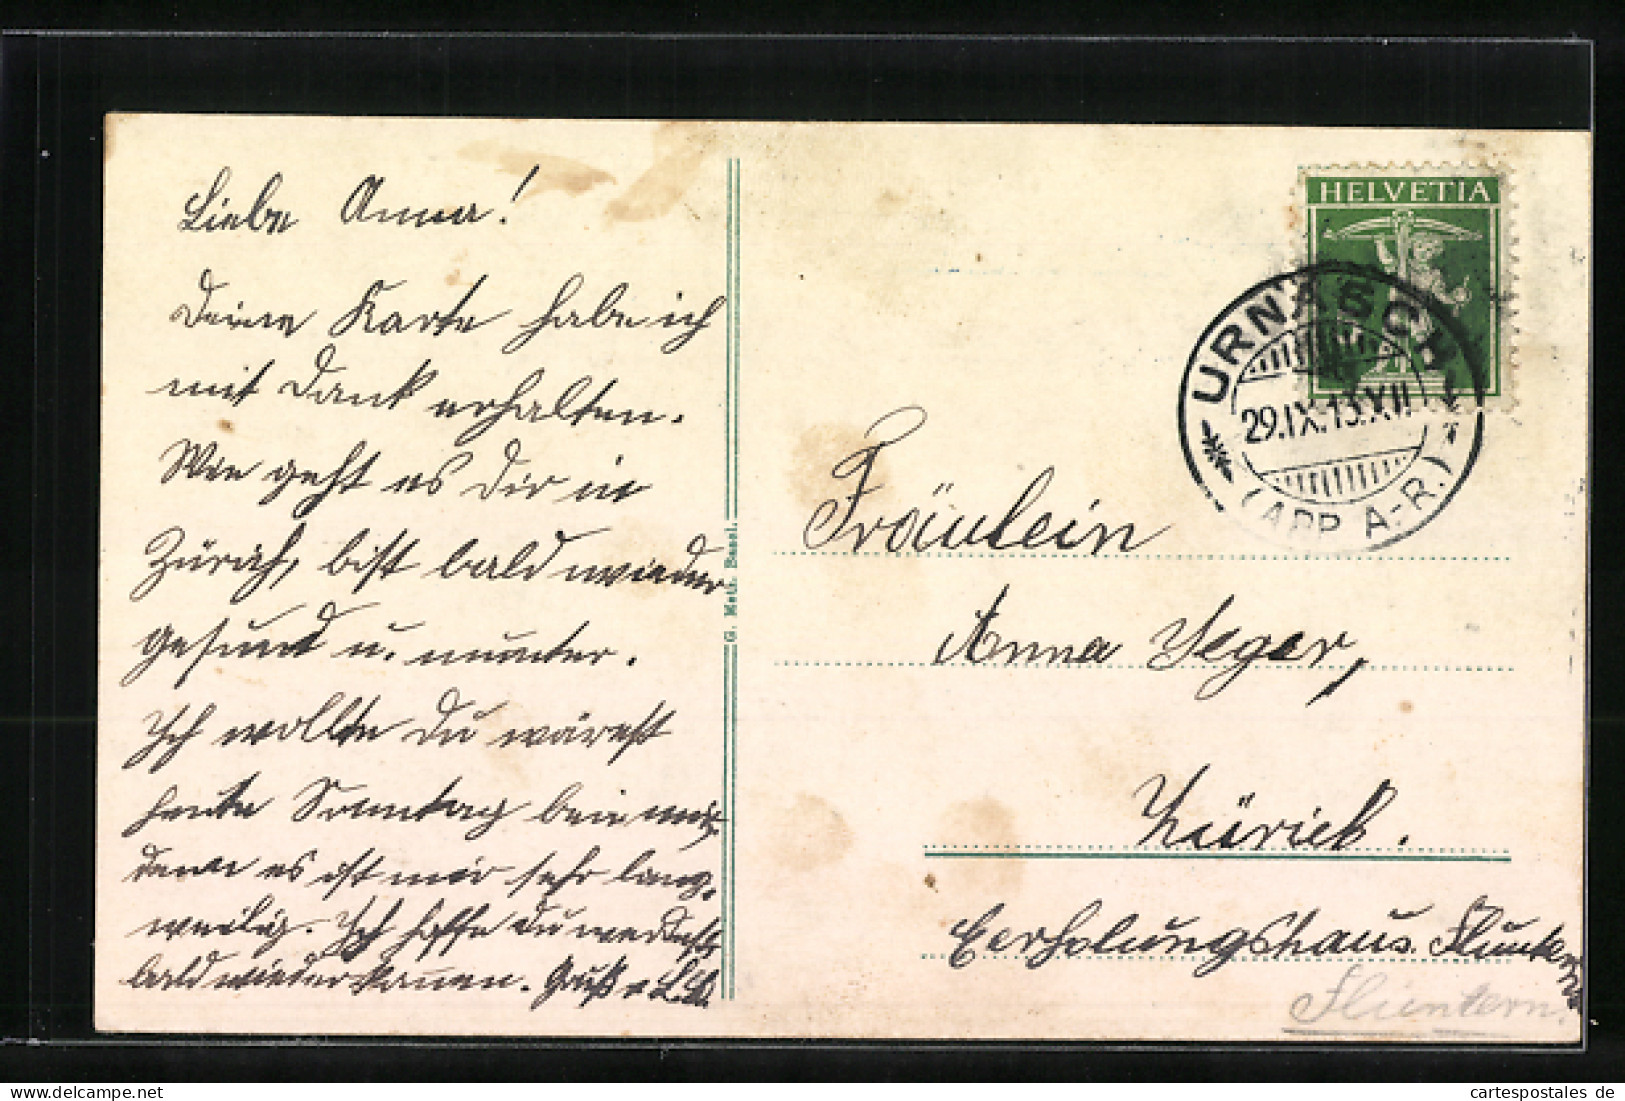 Liebe Anna!
Deine Karte habe ich
mit Dank erhalten.
Wie geht es Dir in
Zürich, bist bald wieder
gesund u. munter.
Ich wollte Du wärest
heute Sonntag bei mir,
denn es ist mir sehr lang-
weilig. Ich hoffe Du werdest
bald wieder kommen. Gruß
G. Metz, Basel.
HELVETIA
URNÄSCH
29.IX.13.XII
(APP. A.-R.)
Fräulein
Anna Jeger,
Zürich.
Eerholungshaus Fluntern
Fluntern.
cartespostales de